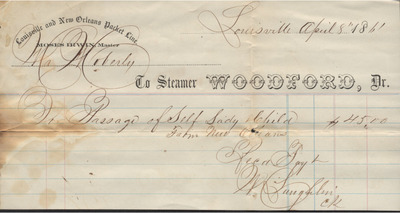 Louisville and New Orleans Packet Line
MOSES IRWIN, Master
Louisville April 8th 1861
Mr Moberly
To Steamer WOODFORD, Dr.
To Passage of Self Lady & Child $45.00
from New Orleans
Recd Payt
W. Laughlin
Clk